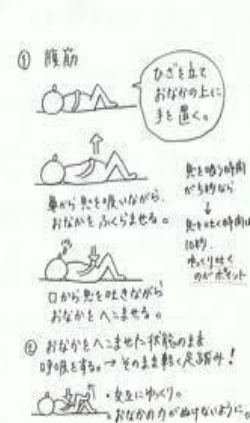 ① 腹筋
ひざを立て
おなかの上に
手を置く。
鼻から息を吸いながら
おなかをふくらませる。
息を吸う時間
が5秒なら
↓
息を吐く時間は
10秒。
ゆっくり吐く
のがポイント
口から息を吐きながら
おなかをへこませる。
② おなかをへこませた状態のまま
呼吸をする。→ そのまま軽く足踏み!
・交互にゆっくり。
・おなかの力がぬけないように。